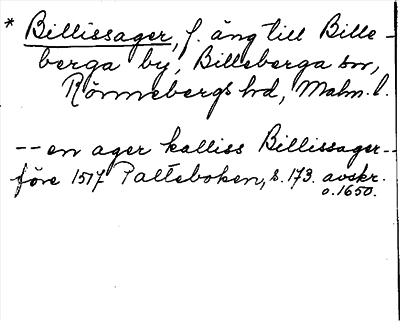 * Billissager, f. äng till Bille-
berga by, Billeberga sn,
Rönnebergs hd, Malm. l.
-- en ager kalliss Billissager--
före 1517 Palteboken, s. 173. avskr.
o. 1650.